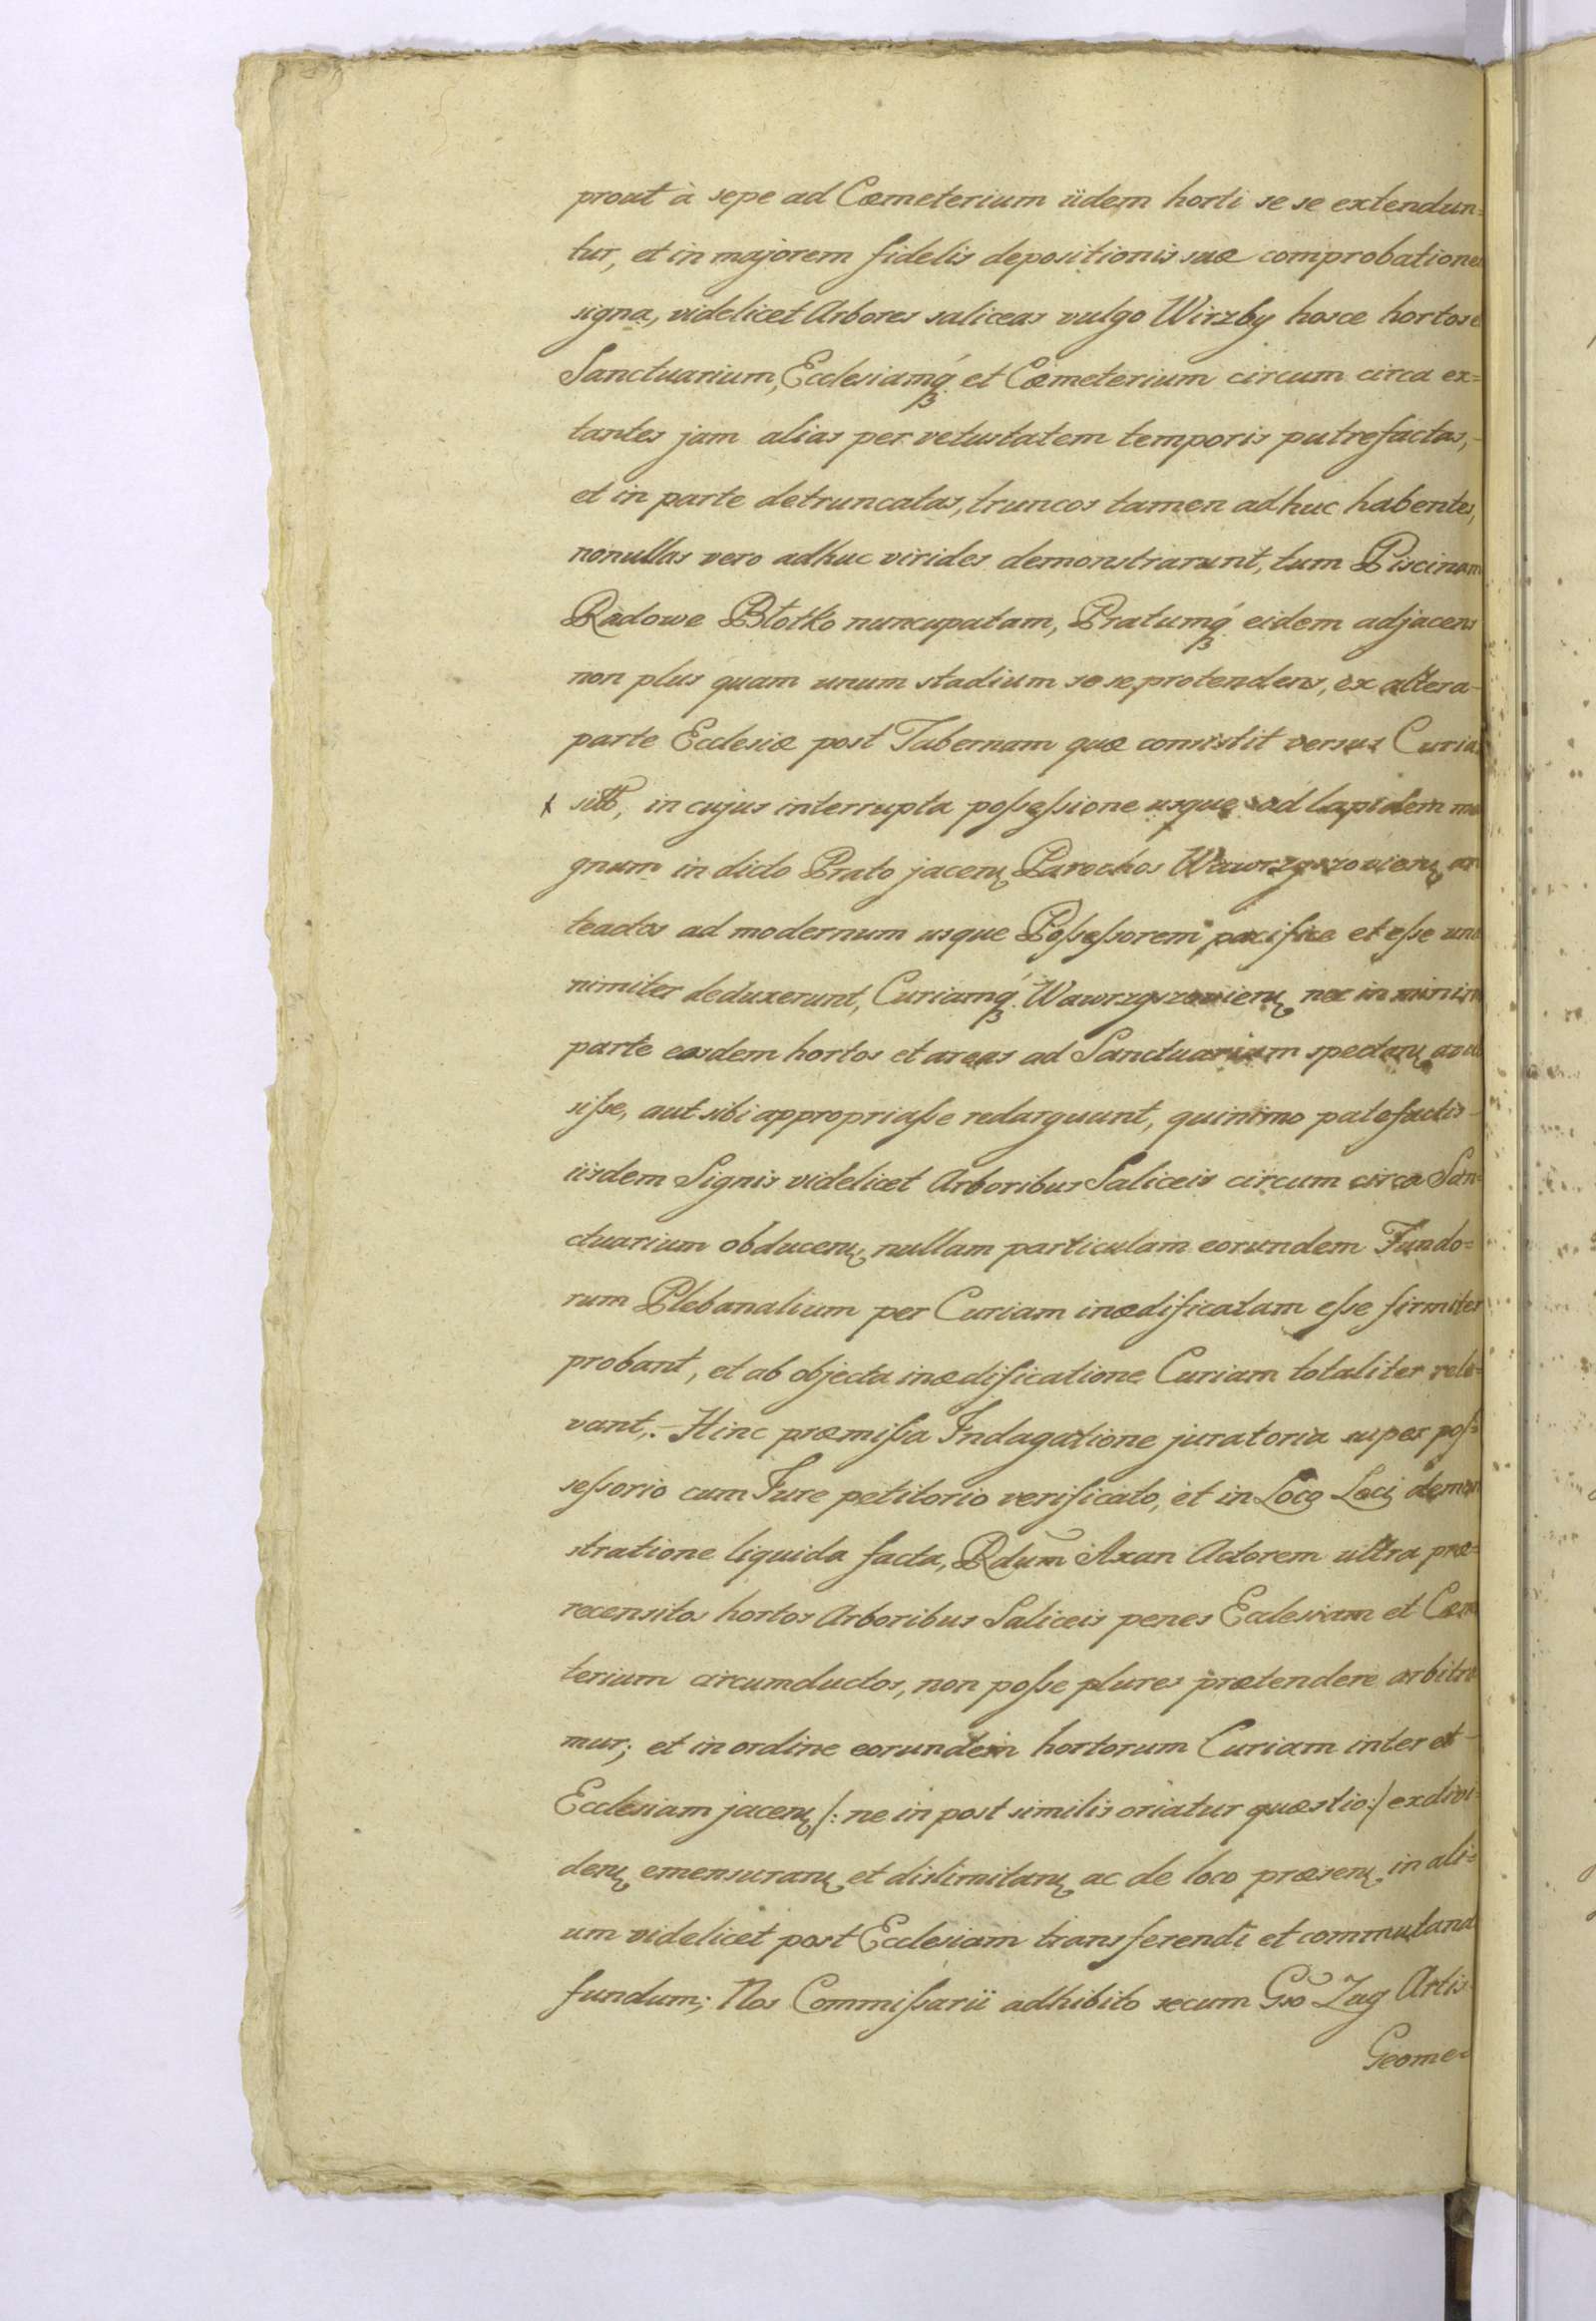 prout à sepe ad Cœmeterium iidem horti se se extendun=
tur, et in majorem fidelis depositionis suæ comprobatione
signa, videlicet Arbores saliceas vulgo Wirzby hosce hortos
Sanctuarium, Ecclesiamq́ꝫ et Cœmeterium circum circa ex=
tantes jam alias per vetustatem temporis putrefactas,-
et in parte detruncatas, truncos tamen adhuc habentes,
nonullas vero adhuc virides demonstrarunt, tum Piscinam
Radowe Błotko nuncupatam, Pratumq́ꝫ eidem adjacens
non plus quam unum stadium se se protendens, ex altera-
parte Ecclesiæ post Tabernam quæ consistit versus Curia
sitt, in cujus interrupta poſseſsione usque ad lapidem ma
gnum in dicto Prato jacenꝫ Parochos Wawrzyszovienꝫ an
teactos ad modernum usque Poſseſsorem pacifice et eſse una
nimiter deduxerunt, Curiamq́ꝫ Wawrzyszovienꝫ nec in minim
parte eosdem hortos et areas ad Sanctuarium spectanꝫ avul
siſse, aut sibi appropriaſse redarguunt, quinimo patefactis-
iisdem Signis videlicet Arboribus Saliceis circum circa San=
ctuarium obducenꝫ nullam particulam eorundem Fundo=
rum Plebanalium per Curiam inædificatam eſse firmiter
probant, et ab objecta inædificatione Curiam totaliter rele=
vant,.- Hinc præmiſsa Indagatione juratoria super poſ=
seſsorio cum Jure petitorio verificato, et in Loco Loci demon
stratione liquida facta, Rdum Axan Actorem ultra præ=
recensitos hortos Arboribus Saliceis penes Ecclesiam et Cœm
terium circumductos, non poſse plures prætendere arbitra
mur; et in ordine eorundem hortorum Curiam inter et-
Ecclesiam jacenꝫ /: ne in post similis oriatur quæstio:/ exdivi=
denꝫ emensuranꝫ et dislimitanꝫ ac de loco præsenꝫ in ali=
um videlicet post Ecclesiam transferendi et commutand
fundum; Nos Commiſsarii adhibito secum Gso Zag Artis
Geome=